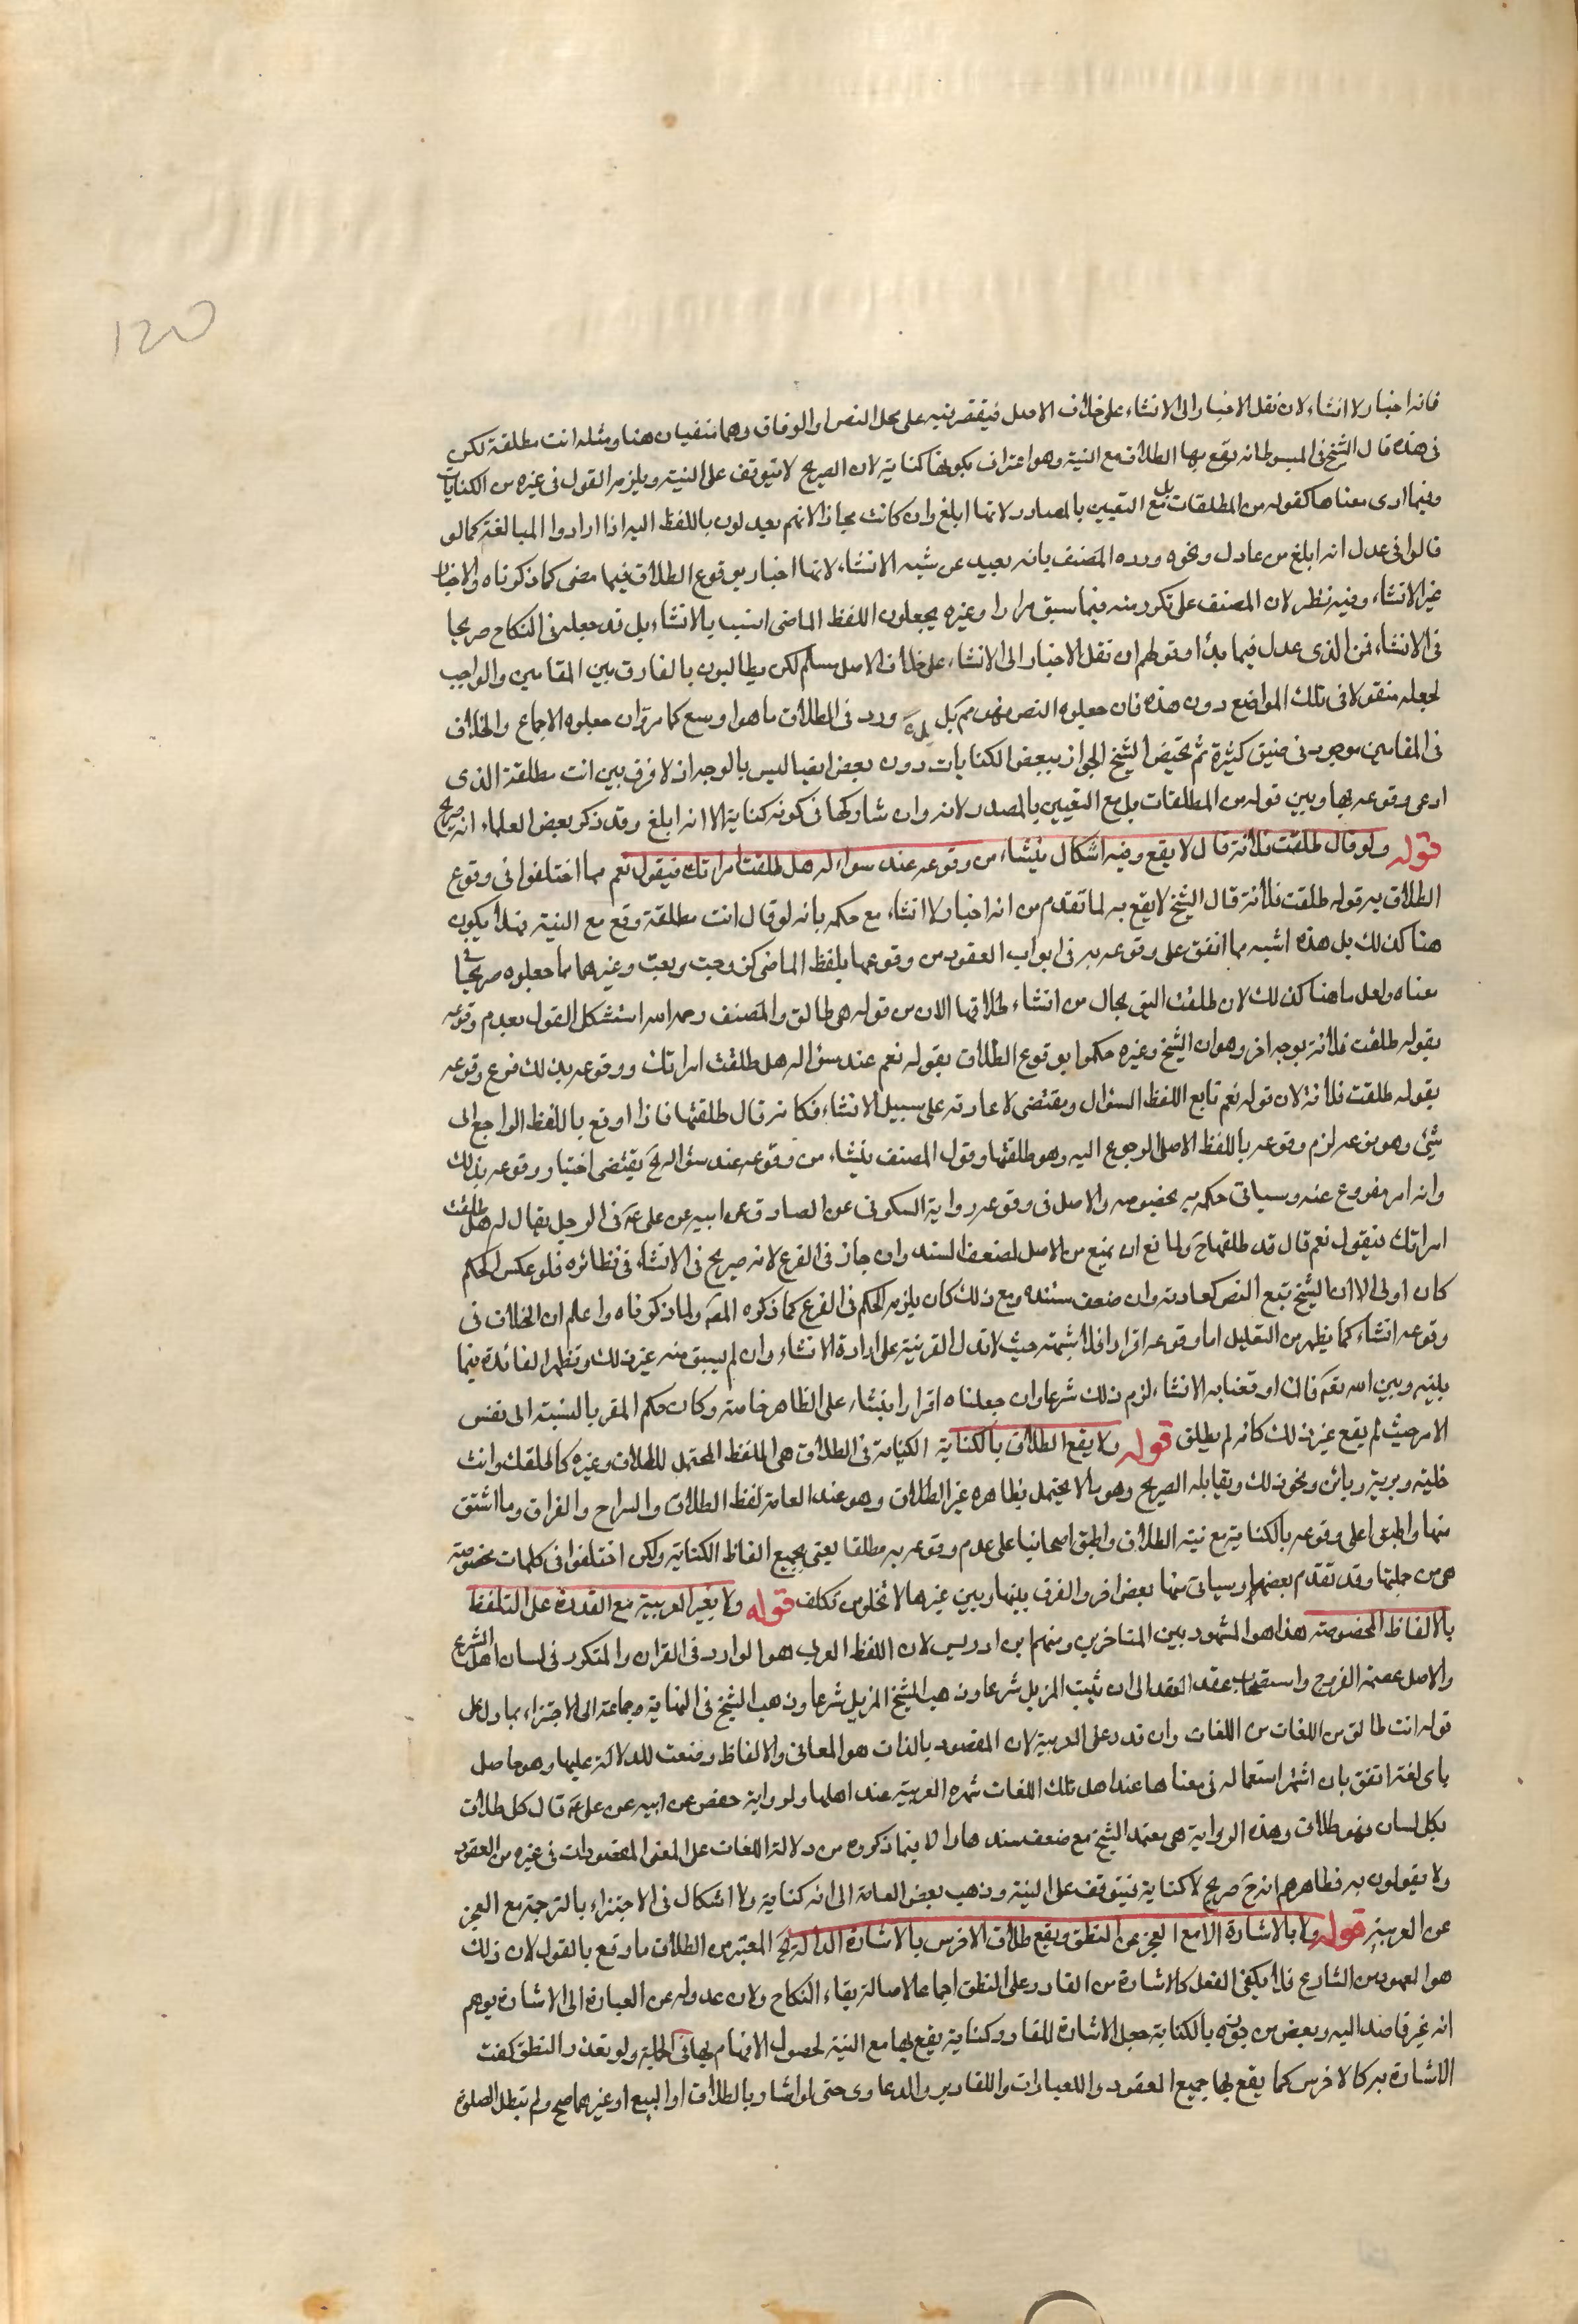 120
فانه اخبار لا انشاء لان نقل الاخبار الى الانشاء على خلاف الاصل فيقتصر فيه على محل النص او الوفاق وهما منفيان هنا ومثله انت مطلقة لكن
فى هذه قال الشيخ فى المبسوط انه يقع بها الطلاق مع النية وهو اعتراف بكونها كناية لان الصريح لا يتوقف على النية ويلزمه القول فى غيره من الكنايات
وفيما ادى معناها كقوله من المطلقات بل مع التعيين بالمصادر لانها ابلغ وان كانت مجازا لانهم يعدلون باللفظ اليه اذا ارادوا المبالغة كما لو
قالوا فى عدل انه ابلغ من عادل ونحوه ورده المصنف بانه بعيد عن شبه الانشاء لانها اخبار بوقوع الطلاق فيما مضى كما ذكرناه والاخبار
غير الانشاء وفيه نظر لان المصنف على تكرر منه فيما سبق مرارا وغيره يجعلون اللفظ الماضى انسب بالانشاء بل قد جعله فى النكاح صريحا
فى الانشاء فمن الذى عدل فيما بدا وقولهم ان نقل الاخبار الى الانشاء على خلاف الاصل مسلم لكن يطالبون بالفارق بين المقامين والواجب
لجعله منقولا فى تلك المواضع دون هذه فان جعلوه النص فهو مم بل ورد فى الطلاق ما هو اوسع كما مر وان جعلوه الاجماع والخلاف
فى المقامين موجود فى صيغ كثيرة ثم تخيص الشيخ الجواز ببعض الكنايات دون بعض ايضا ليس بالوجه اذ لا فرق بين انت مطلقة الذى
ادعى وقوعه بها وبين قوله من المطلقات بل مع التعيين بالمصدر لانه وان شاركها فى كونه كناية الا انه ابلغ وقد ذكر بعض العلماء انه صريح
قوله ولو قال طلقت فلانة قال لا يقع وفيه اشكال ينشاء من وقوعه عند سواله هل طلقت امراتك فيقول نعم مما اختلفوا فى وقوع
الطلاق به قوله طلقت فلانة قال الشيخ لا يقع به لما تقدم من انه اخبار لا انشاء مع حكمه بانه لو قال انت مطلقة وقع مع النية فهلا يكون
هنا كذلك بل هذه اشبه مما اتفق على وقوعه به فى ابواب العقود من وقوعها بلفظ الماضى كزوجت وبعت وغيرهما مما جعلوه صريحا فى
معناه ولعل ما هنا كذلك لان طلقت اليق بحال من انشاء طلاقها الان من قوله هى طالق والمصنف رحمه الله استشكل القول بعدم وقوعه
بقوله طلقت فلانة بوجه اخر وهو ان الشيخ وغيره حكموا بوقوع الطلاق بقوله نعم عند سؤاله هل طلقت امراتك ووقوعه بذلك فرع وقوعه
بقوله طلقت فلانة لان قوله نعم تابع للفظ السؤال ومقتضى لاعادته على سبيل الانشاء فكانه قال طلقتها فاذا وقع باللفظ الراجع الى
شئ وهو فرعه لزم وقوعه باللفظ الاصل المرجوع اليه وهو طلقتها وقول المصنف ينشاء من وقوعه عند سؤاله الخ يقتضى اختيار وقوعه بذلك
وانه امر مفروغ عنه وسياتى حكمه به بخصوصه والاصل فى وقوعه رواية السكونى عن الصادق عن ابيه عن على ع فى الرجل يقال له هل طلقت
امراتك فيقول نعم قال قد طلقها ح ولمانع ان يمنع من الاصل لضعف السند وان جاز فى الفرع لانه صريح فى الانشاء فى نظائره فلو عكس الحكم
كان اولى الا ان الشيخ تبع النص كعادته وان ضعف سنده ومع ذلك كان يلزمه الحكم فى الفرع كما ذكره المص ولما ذكرناه واعلم ان الخلاف فى
وقوعه انشاء كما يظهر من التعليل اما وقوعه اقرارا فلا شبهة حيث لا تدل القرينة على ارادة الانشاء وان لم يسبق منه غير ذلك وتظهر الفائدة فيما
بينه وبين الله تعم فان اوقعنا به الانشاء لزم ذلك شرعا وان جعلناه اقرارا ينشاء على الظاهر خاصة وكان حكم المقر بالنسبة الى نفس
الامر حيث لم يقع غير ذلك كانه لم يطلق قوله ولا يقع الطلاق بالكناية الكناية فى الطلاق هى اللفظ المحتمل للطلاق وغيره كالطلقك وانت
خلية وبرية وبائن ونحو ذلك ويقابله الصريح وهو ما لا يحتمل بظاهره غير الطلاق وهو عند العامة لفظ الطلاق والسراح والفراق وما اشتق
منها واطبقوا على وقوعه بالكناية مع نية الطلاق واطبق اصحابنا على عدم وقوعه به مطلقا يعنى بجميع الفاظ الكناية ولكن اختلفوا فى كلمات مخصوصة
هى من جملتها وقد تقدم بعضها وسياتى منها بعض اخر والفرق بينها وبين غيرها لا يخلو من تكلف قوله ولا بغير العربية مع القدرة على التلفظ
بالالفاظ المخصوصة هذا هو المشهور بين المتاخرين ومنهم ابن ادريس لان اللفظ العربى هو الوارد فى القران والمتكرر فى لسان اهل الشرع
والاصل عصمة الفروج واستصحاب عقد العقد الى ان يثبت المزيل شرعا وذهب الشيخ المزيل شرعا وذهب الشيخ فى النهاية وجماعة الى الاجتزاء بما دل على
قوله انت طالق من اللغات من اللغات وان قدر على العربية لان المقصود بالذات هو المعانى والالفاظ وضعت للدلالة عليها وهو حاصل
باى لغة اتفق بان اشتهر استعماله فى معناها عند اهل تلك اللغات شهرة العربية عند اهلها ولرواية حفص عن ابيه عن على ع قال كل طلاق
بكل لسان فهو طلاق وهذه الرواية هى معتمد الشيخ مع ضعف سندها والا فما ذكروه من دلالة اللغات على المعنى المقصود ات فى غيره من العقود
ولا يقولون به فظاهرهم انه ح صريح لا كناية فيتوقف على النية وذهب بعض العامة الى انه كناية ولا اشكال فى الاجتزاء بالترجمة مع العجز
عن العربية قوله ولا بالاشارة الا مع العجز عن النطق ويقع طلاق الاخرس بالاشارة الدالة الخ المعتبر من الطلاق ما وقع بالقول لان ذلك
هو المعهود من الشارع فلا يكفى الفعل كالاشارة من القادر على النطق اجماعا لاصالة بقاء النكاح ولان عدوله عن العبارة الى الاشارة يوهم
انه غير قاصد اليه وبعض من جوزه بالكناية جعل الاشارة للقادر كناية يقع بها مع النية لحصول الافهام بها فى الجملة ولو تعذر النطق كفت
الاشارة به كالاخرس كما يقع بها جميع العقود والعبارات والاقارير والدعاوى حتى لو اشار بالطلاق او البيع او غيرهما صح ولم تبطل الصلوة